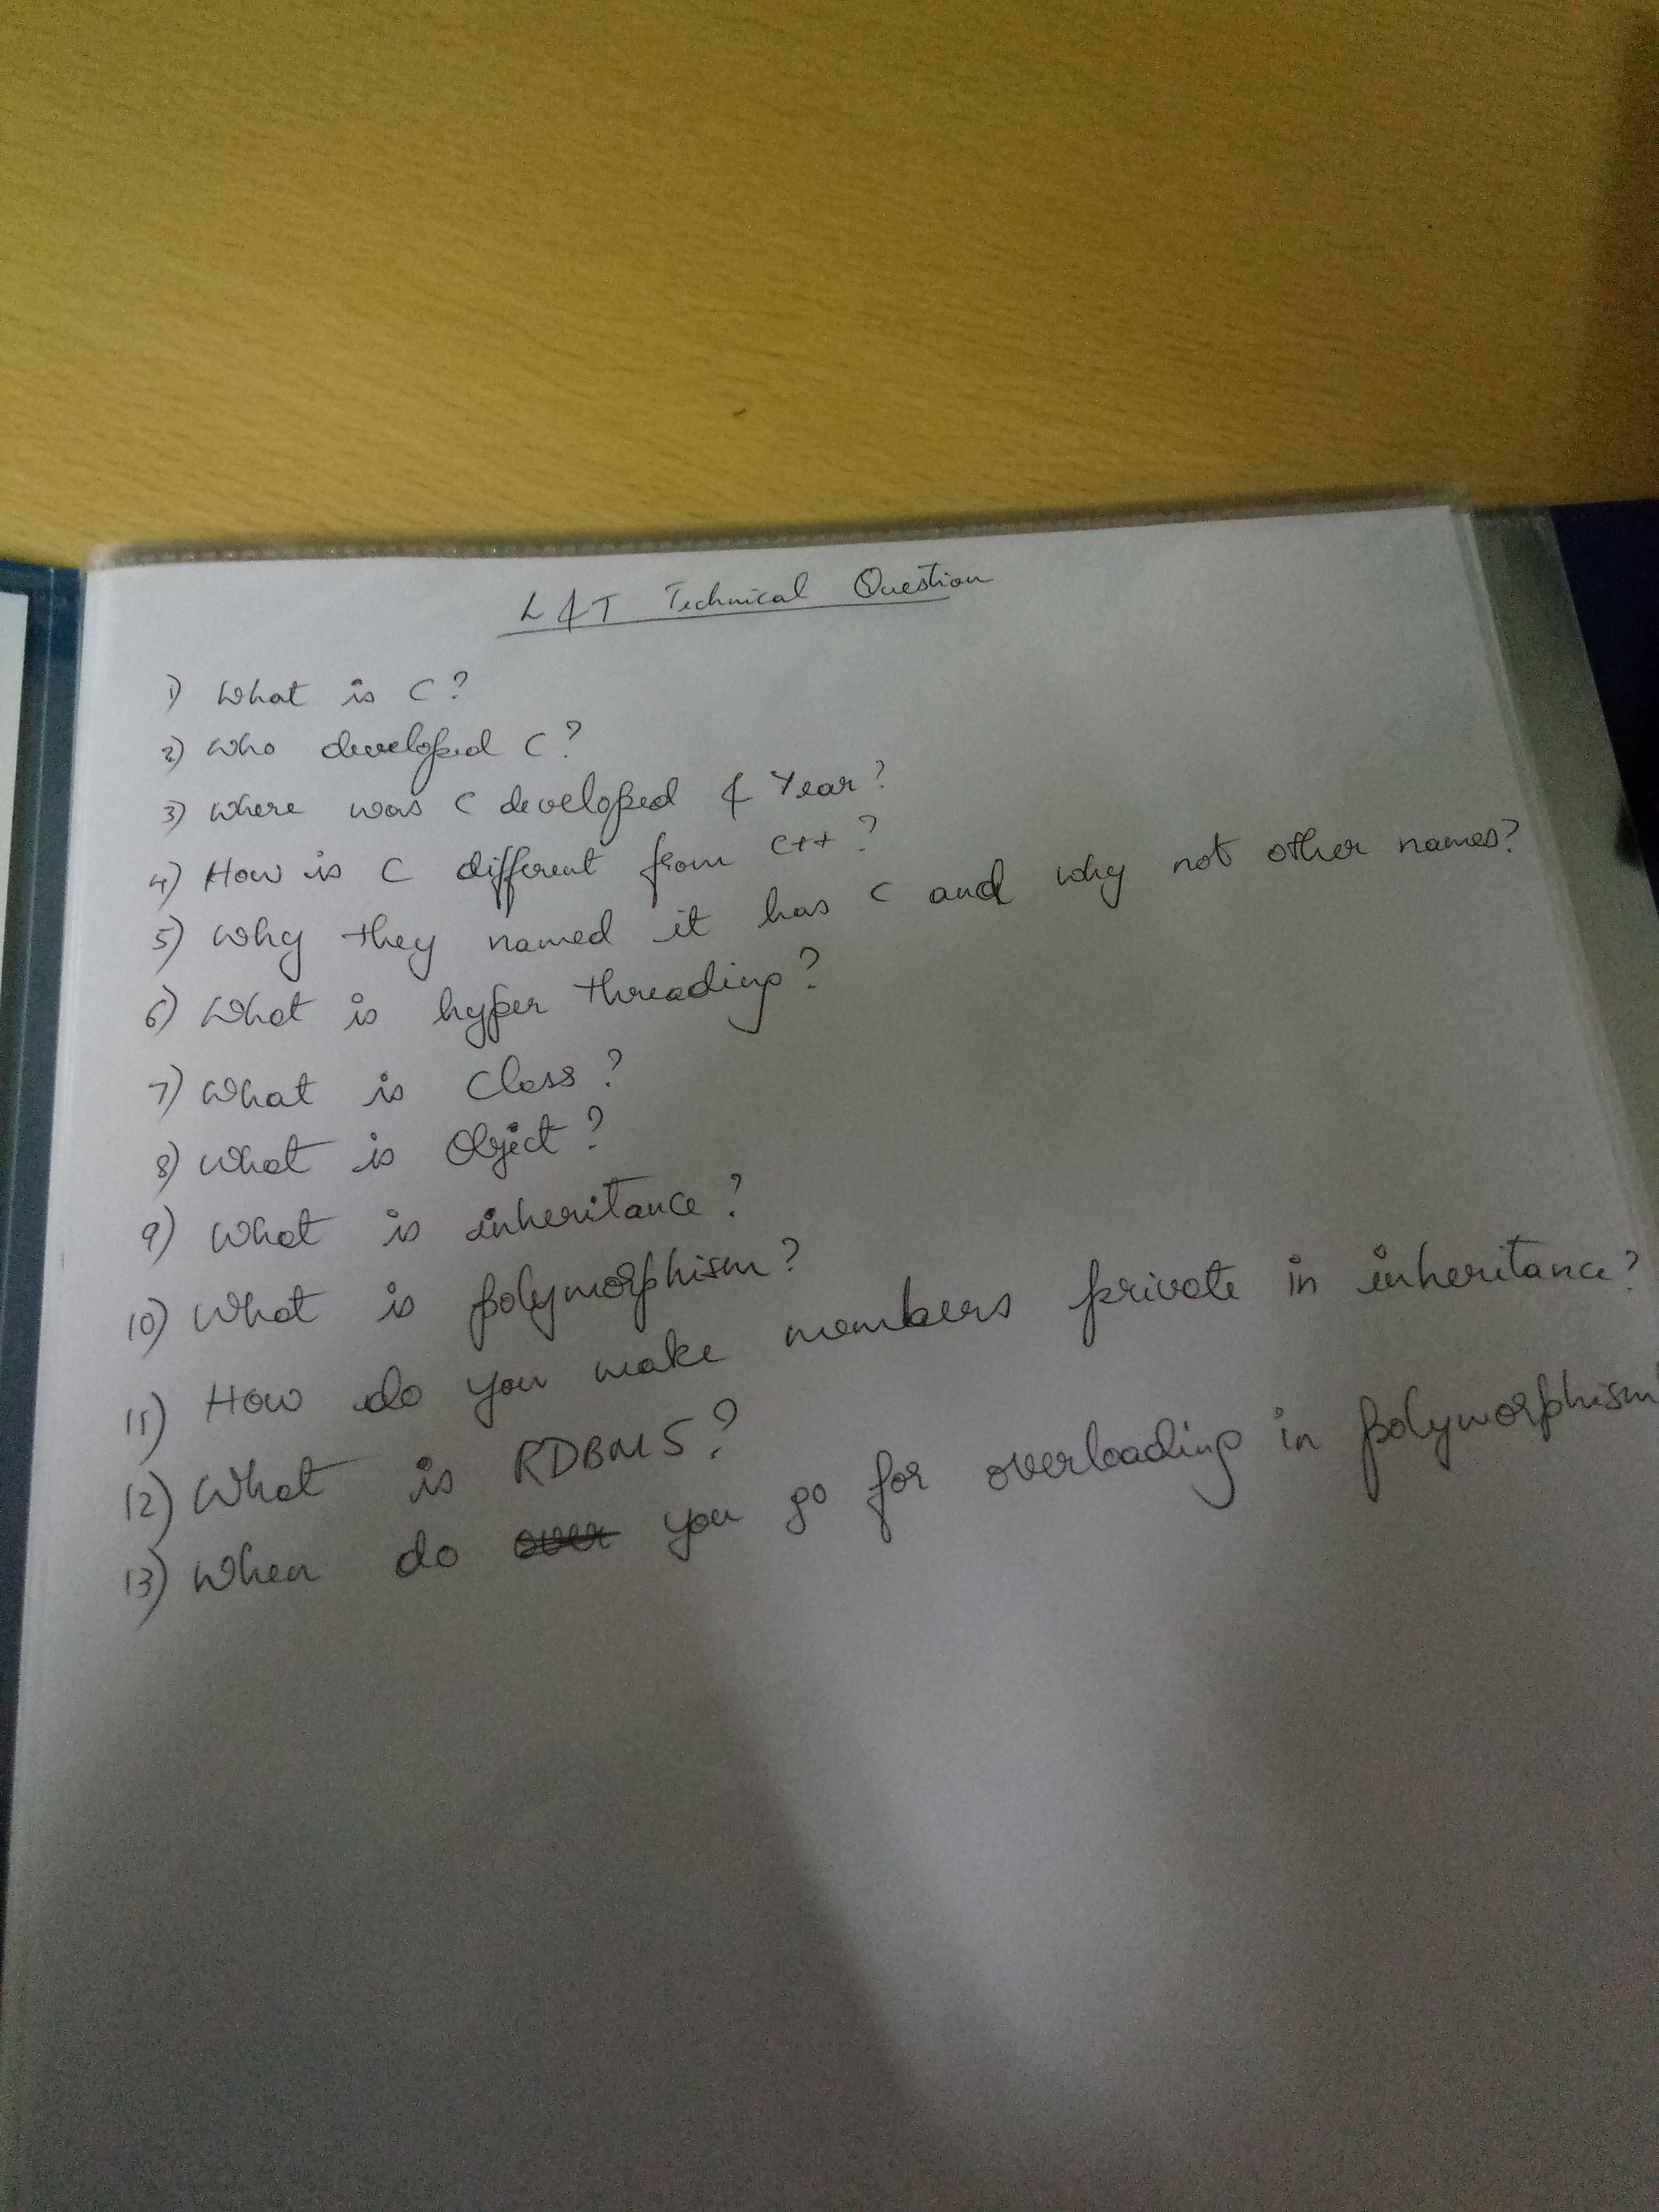 L&T Technical Question
1) What is C?
2) Who developed C?
3) Where was C developed & Year?
4) How is C different from C++?
5) Why they named it has C and why not other names?
6) What is hyper threading?
7) What is Class?
8) What is Object?
9) What is inheritance?
10) What is polymorphism?
11) How do you make members private in inheritance?
12) What is RDBMS?
13) When do over you go for overloading in polymorphism